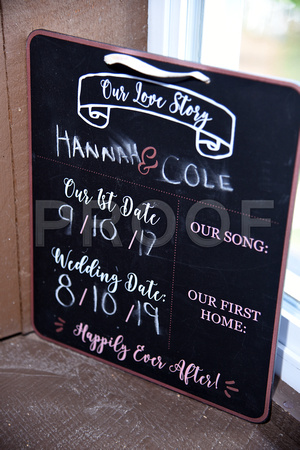 Our Love Story
HANNAH & COLE
Our 1st Date
9/10/17
OUR SONG:
PROOF
Wedding Date:
8/10/19
OUR FIRST
HOME:
Happily Ever After!